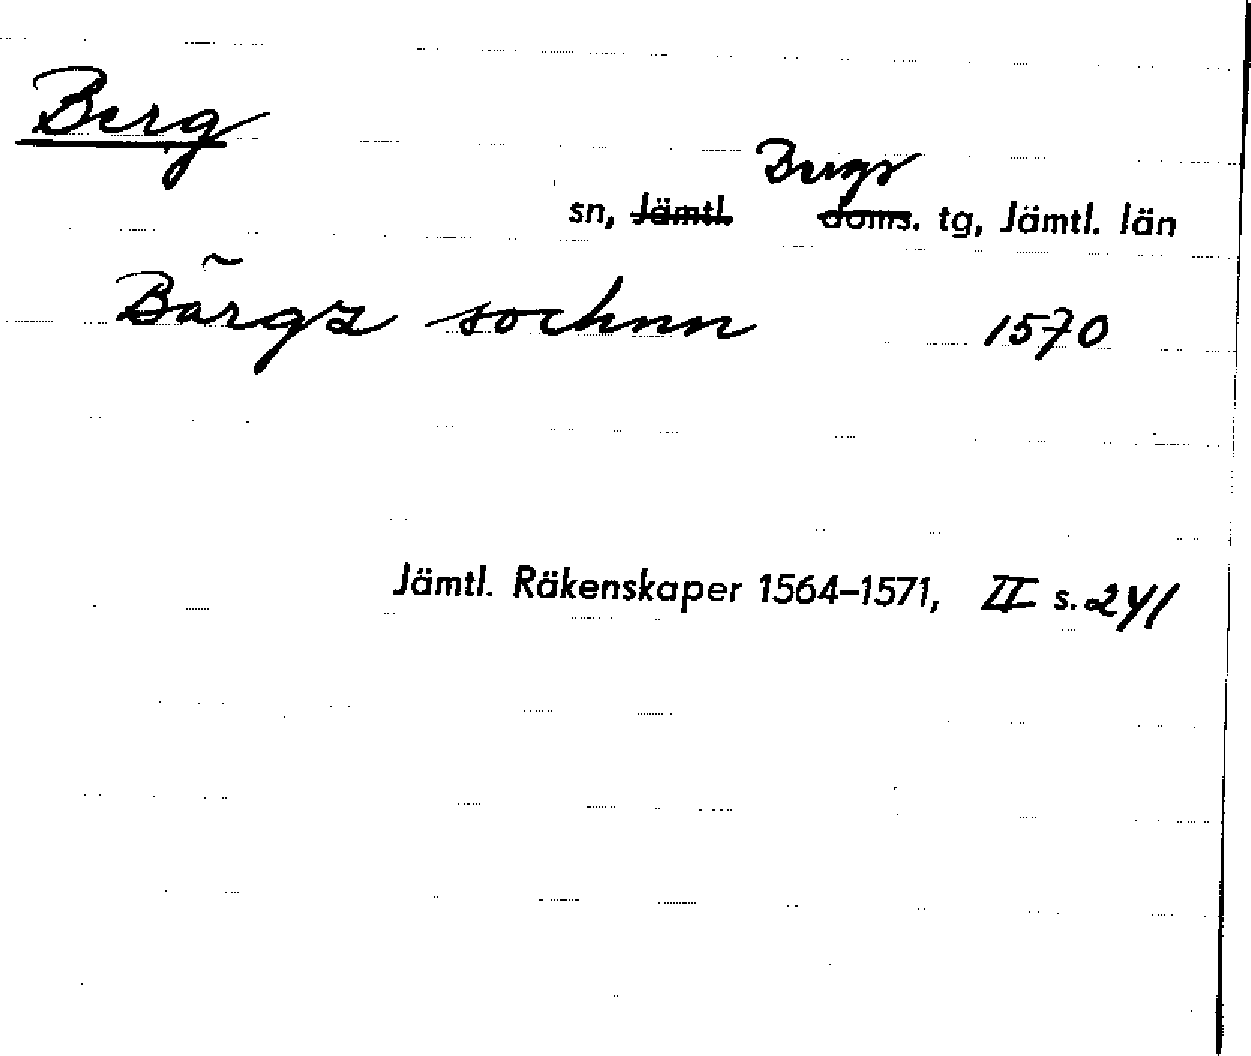 Berg
Bergs
sn, Jämtl. doms. tg, Jämtl. län
Bärgz sochnn 1570
Jämtl. Räkenskaper 1564–1571, II s. 241